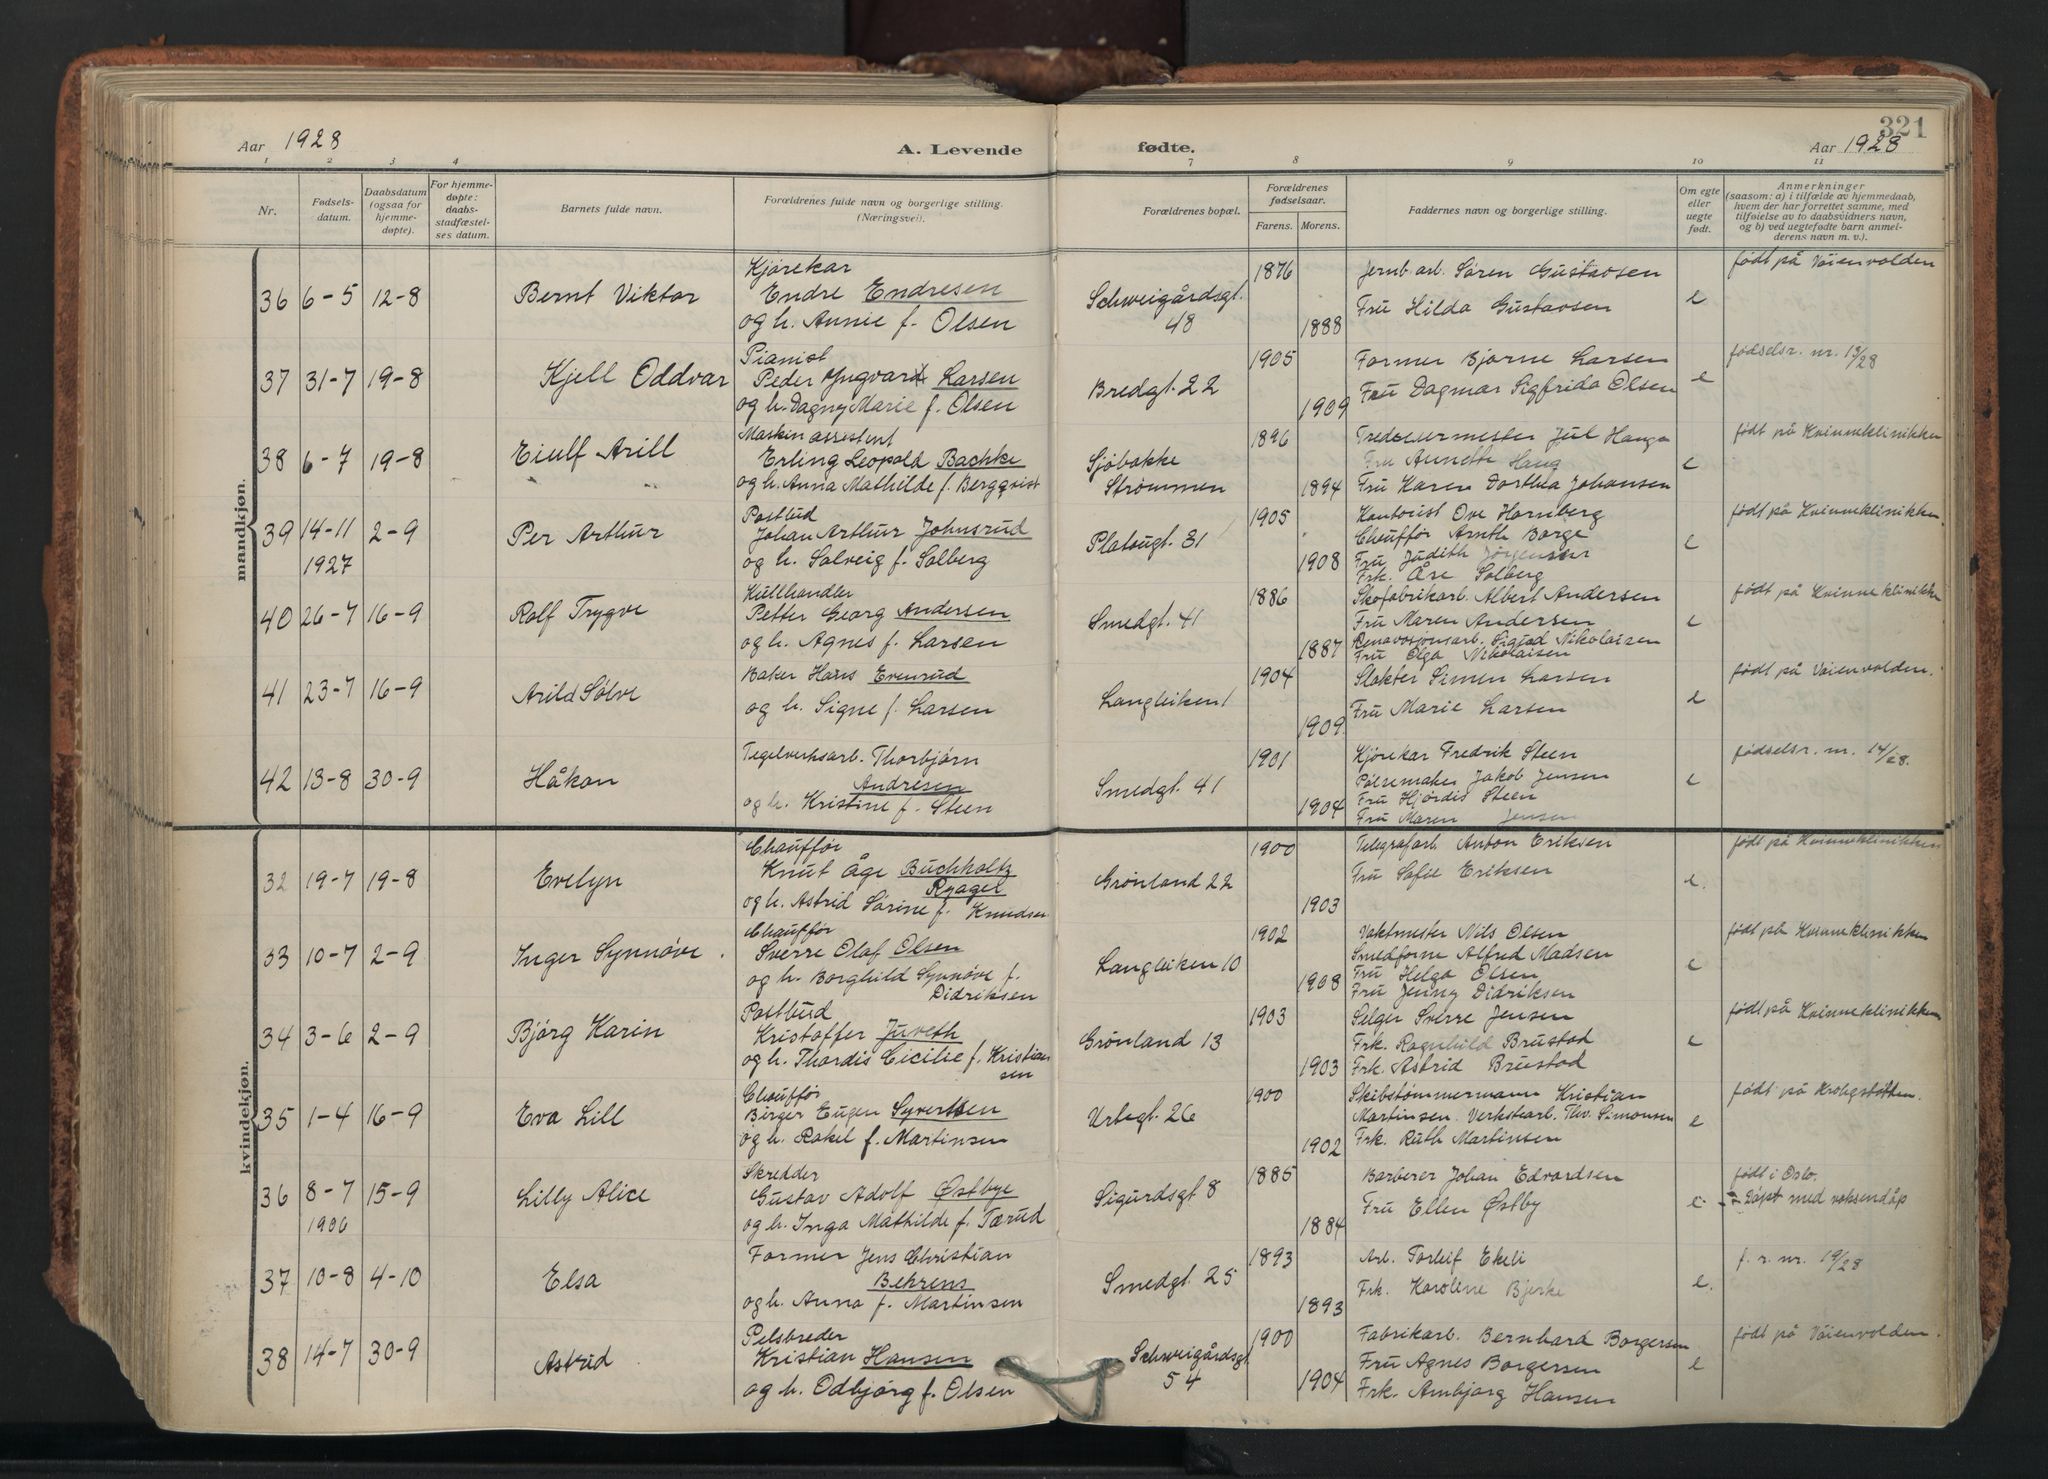 321
Aar 1928
A. Levende fødte.
Aar 1928
1 2 3 4 7 8 9 10 11
Nr.
Fødsels-
datum.
Daabsdatum
(ogsaa for
hjemme-
døpte).
For hjemme-
døpte:
daabs-
stadfæstel-
ses datum.
Barnets fulde navn.
Forældrenes fulde navn og borgerlige stilling.
(Næringsvei).
Forældrenes bopæl.
Forældrenes
fødselsaar.
Farens. Morens.
Faddernes navn og borgerlige stilling.
Om egte
eller
uegte
født.
Anmerkninger
(saasom: a) i tilfælde av hjemmedaab,
hvem der har forrettet samme, med
tilføielse av to daabsvidners navn,
og b) ved uegtefødte barn anmel-
derens navn m. v.).
mandkjøn.
36 6-5 12-8 Bernt Viktor
Kjørekar
Endre Endresen
og h. Annie f. Olsen
Schweigårdsgt.
48
1876
1888
Jernb. arb. Søren Gustavsen
Fru Hilda Gustavsen
e
født på Vøienvolden
37 31-7 19-8 Kjell Oddvar
Pianist
Peder Yngvard Larsen
og h. Dagny Marie f. Olsen
Bredgt. 22
1905
1909
Former Bjarne Larsen
Fru Dagmar Sigfrida Olsen
e
fødselsr. nr. 13/28
38 6-7 19-8 Eiulf Arill
Maskinassistent
Erling Leopold Bachke
og h. Anna Mathilde f. Bergqvist
Sjøbakke
Strømmen
1896
1894
Jul Hauga
Fru Annette Haug
Fru Karen Dorthea Johansen
e
født på Kvinneklinikken
39 14-11 2-9 Per Arthur
1927
Postbud
Johan Arthur Johnsrud
og h. Solveig f. Solberg
Platougt. 31
1905
1908
Kontorist Ove Hornberg
Chauffør Arnth Borge
Fru Judith Jørgensen
Frk. Åse Solberg
e
født på Kvinneklinikken.
40 26-7 16-9 Rolf Trygve
Kullhandler
Petter Georg Andersen
og h. Agnes f. Larsen
Smedgt. 41
1886
1887
Skofabrikarb. Albert Andersen
Fru Maren Andersen
Renovasjonsarb. Sigurd Nikolaisen
Fru Olga Nikolaisen
e
født på Kvinneklinikken
41 23-7 16-9 Arild Sølve
Baker Hans Evenrud
og h. Signe f. Larsen
Langleiken 1
1904
1909.
Slakter Simen Larsen
Fru Marie Larsen
e
født på Vøienvolden.
42 13-8 30-9 Håkon
Tegelverksarb. Thorbjørn
Andresen
og h. Kristine f. Steen
Smedgt. 41
1901
1904
Kjørekar Fredrik Steen
Pølsemaker Jakob Jensen
Fru Hjørdis Steen
Fru Maren Jensen
e
fødselsr. nr. 14/28.
kvindekjøn.
32 19-7 19-8 Evelyn
Chauffør
Knut Åge Buchholtz
Ryager
og h. Astrid Sørine f. Knudsen
Grønland 22
1900
1903
Telegrafarb. Anton Eriksen
Fru Sofie Eriksen
e.
født på Kvinneklinikken
33 10-7 2-9 Inger Synnøve.
Chauffør
Sverre Olaf Olsen
og h. Borghild Synnøve f.
Didriksen
Langleiken 10
1902
1908
Vaktmester Nils Olsen
Alfred Madsen
Fru Helga Olsen
Fru Jenny Didriksen
e
født på Kvinneklinikken
34 3-6 2-9 Bjørg Karin
Postbud
Kristoffer Juveth
og h. Thordis Cicilie f. Kristian
sen
Grønland 13
1903
1903
Selger Sverre Jensen
Frk. Ragnhild Brustad
Frk. Astrid Brustad
e
født på Kvinneklinikken
35 1-4 16-9 Eva Lill
Chauffør
Birger Eugen Syvertsen
og h. Rakel f. Martinsen
Urtegt. 26
1900
1902
Skibstømmermann Kristian
Martinsen. Verkstarb. Thv. Simonsen
Frk. Ruth Martinsen
e
født på Krohgstøtten.
36 8-7 15-9 Lilly Alice
1906
Skredder
Gustav Adolf Østbye
og h. Inga Mathilde f. Tærud
Sigurdsgt 8
1885
1884
Barberer Johan Edvardsen
Fru Ellen Østby
e
født i Oslo.
Døpt med voksendåp
37 10-8 4-10 Elsa
Former Jens Christian
Behrens
og h. Anna f. Martinsen
Smedgt. 25
1893
1893
Arb. Torleif Ekeli
Frk. Karoline Bjerke
e.
f. r. nr. 19/28
38 14-7 30-9 Astrid
Pelsbreder
Kristian Hansen
og h. Odbjørg f. Olsen
Schweigårdsgt
54
1900
1904
Fabrikarb. Bernhard Borgersen
Fru Agnes Borgersen
Frk. Arnbjørg Hansen
e
født på Vøienvolden.